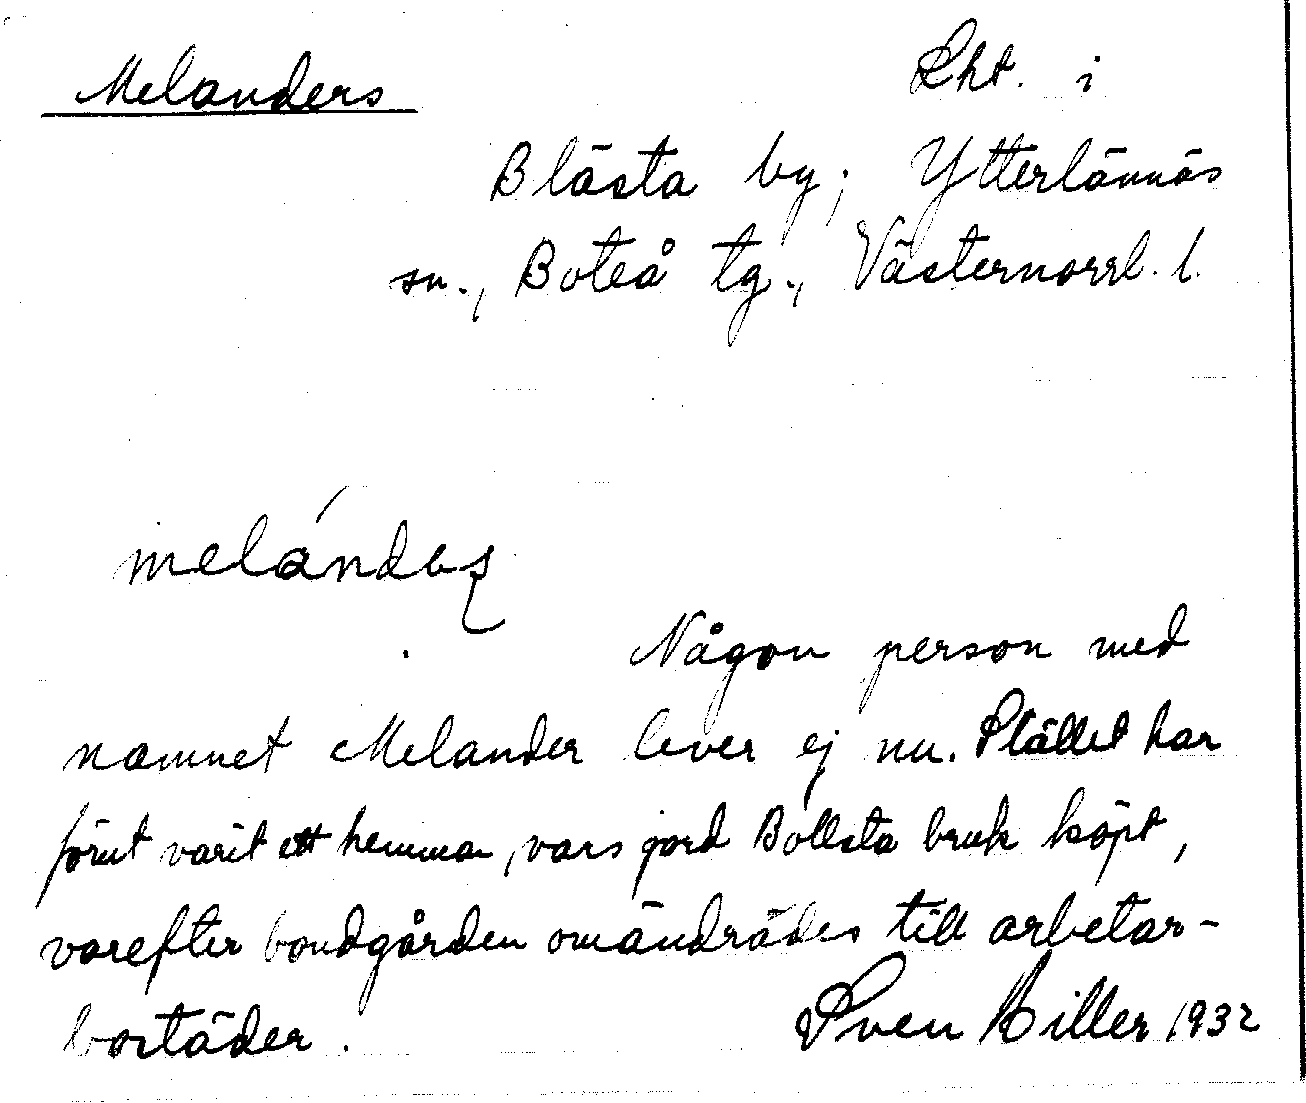 Melanders
Lht. i
Blästa by; Ytterlännäs
sn., Boteå tg., Västernorrl. l.
melándeʂ
Någon person med
namnet Melander lever ej nu. Stället har
förut varit ett hemman, vars jord Bollsta bruk köpt,
varefter bondgården omändrades till arbetar-
bostäder.
Sven Hiller 1932